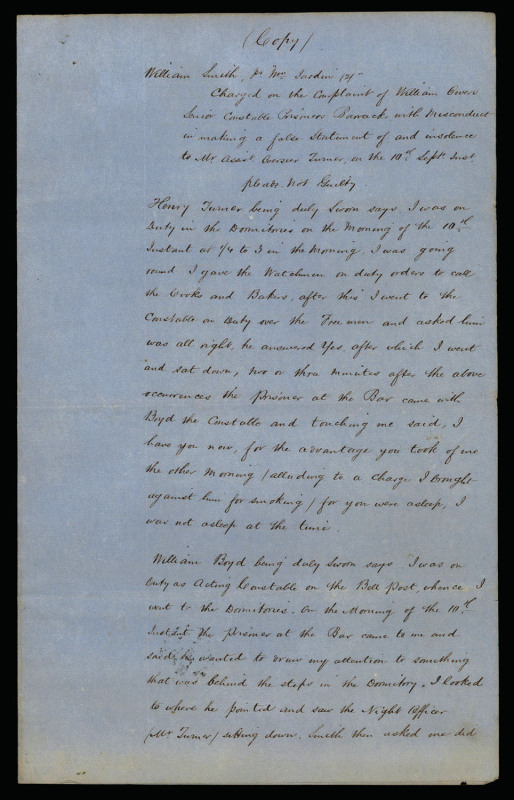 (Copy)
William Smith, pr "Wm Jardin" (2)
Charged on the Complaint of William Owen
Senior Constable Prisoners Barracks with Misconduct
in making a false Statement of and insolence
to Mr Assist Overseer Turner, on the 10th Sept Inst
pleads Not Guilty.
Henry Turner being duly Sworn says I was on
Duty in the Dormitories on the Morning of the 10th
Instant at 1/4 to 3 in the Morning. I was going
round I gave the Watchmen on duty orders to call
the Cooks and Bakers, after this I went to the
Constable on Duty over the Free men and asked him
was all right, he answered Yes, after which I went
and sat down, two or three minutes after the above
occurrences the prisoner at the Bar came with
Boyd the Constable and touching me said, I
have you now, for the advantage you took of me
the other Morning (alluding to a charge I brought
against him for smoking) for you were asleep, I
was not asleep at the time.
William Boyd being duly Sworn says I was on
duty as Acting Constable on the Bell Post, whence I
went to the Dormitories. On the Morning of the 10th
Instant the prisoner at the Bar came to me and
said he wanted to draw my attention to something
that was behind the steps in the Dormitory, I looked
to where he pointed and saw the Night Officer
(Mr Turner) sitting down. Smith then asked me did